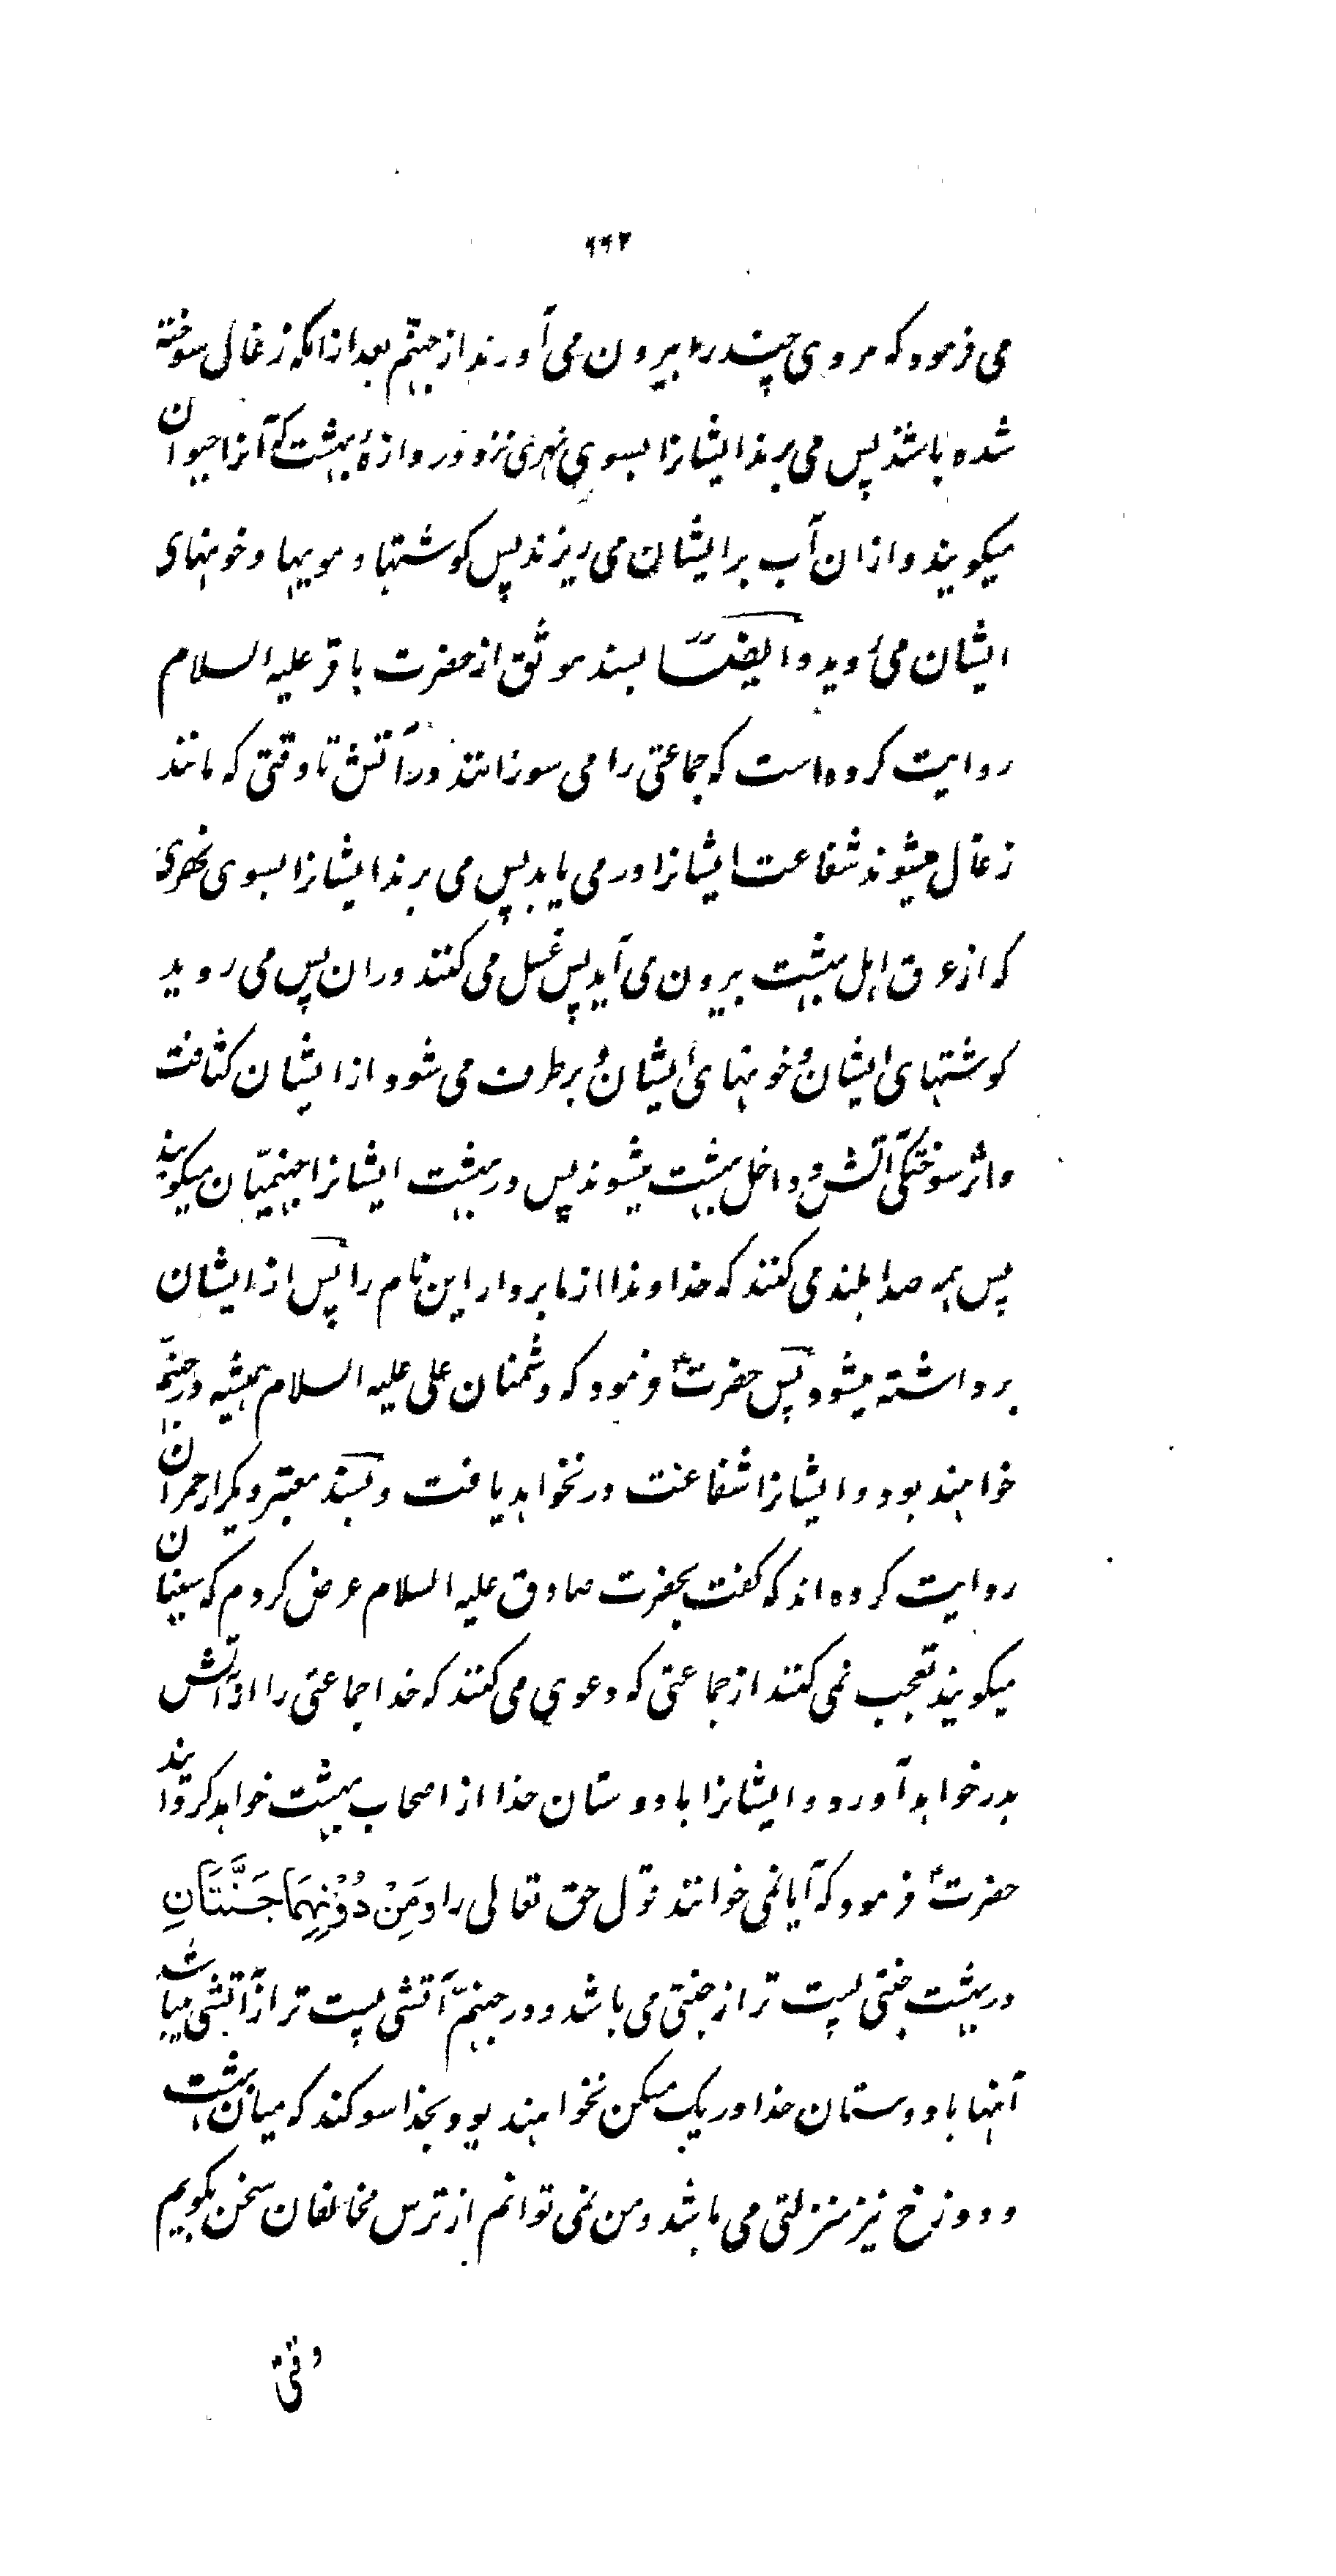 ۶۶۲
می فرمود که مردی چند را بیرون می آورند از جهنّم بعد از انکه زغالی سوخته
شده باشند پس می برند ایشانرا بسوی نهری نزد دروازهٔ بهشت که آنرا حیوان
میکویند و از ان آب بر ایشان می ریزند پس کوشتها و مویها و خونهای
ایشان می روید و ایضا بسند موثق از حضرت باقر علیه السلام
روایت کرده است که جماعتی را می سوزانند در آتش تا وقتی که مانند
زغال میشوند شفاعت ایشانرا در می یابد پس می برند ایشانرا بسوی نهری
که از عرق اهل بهشت بیرون می آید پس غسل می کنند در ان پس می روید
کوشتهای ایشان و خونهای ایشان و برطرف می شود از ایشان کثافت
و اثر سوختکی آتش و داخل بهشت میشوند پس در بهشت ایشانرا جهنمیّان میکویند
پس همه صدا بلند می کنند که خداوندا از ما بردار این نام را پس از ایشان
برداشته میشود پس حضرتؑ فرمود که دشمنان علی علیه السلام همیشه در جهنّم
خواهند بود و ایشانرا شفاعت در نخواهد یافت و بسند معتبر دیکر از حمران
روایت کرده اند که کفت بحضرت صادق علیه السلام عرض کردم که سنیان
میکویند تعجب نمی کنند از جماعتی که دعوی می کنند که خدا جماعتی را از آتش
بدر خواهد آورد و ایشانرا با دوستان خدا از اصحاب بهشت خواهد کردانید
حضرتؑ فرمود که آیا نمی خوانند قول حق تعالی را وَمِنْ دُوْنِهِمَا جَنَّتَانِ
در بهشت جنتی پست تر از جنتی می باشد و در جهنمّ آتشی پست تر از آتشی میباشد
آنها با دوستان خدا در یک مسکن نخواهند بود بخدا سوکند که میان بهشت
و دوزخ نیز منزلتی می باشد و من نمی توانم از ترس مخالفان سخن بکویم